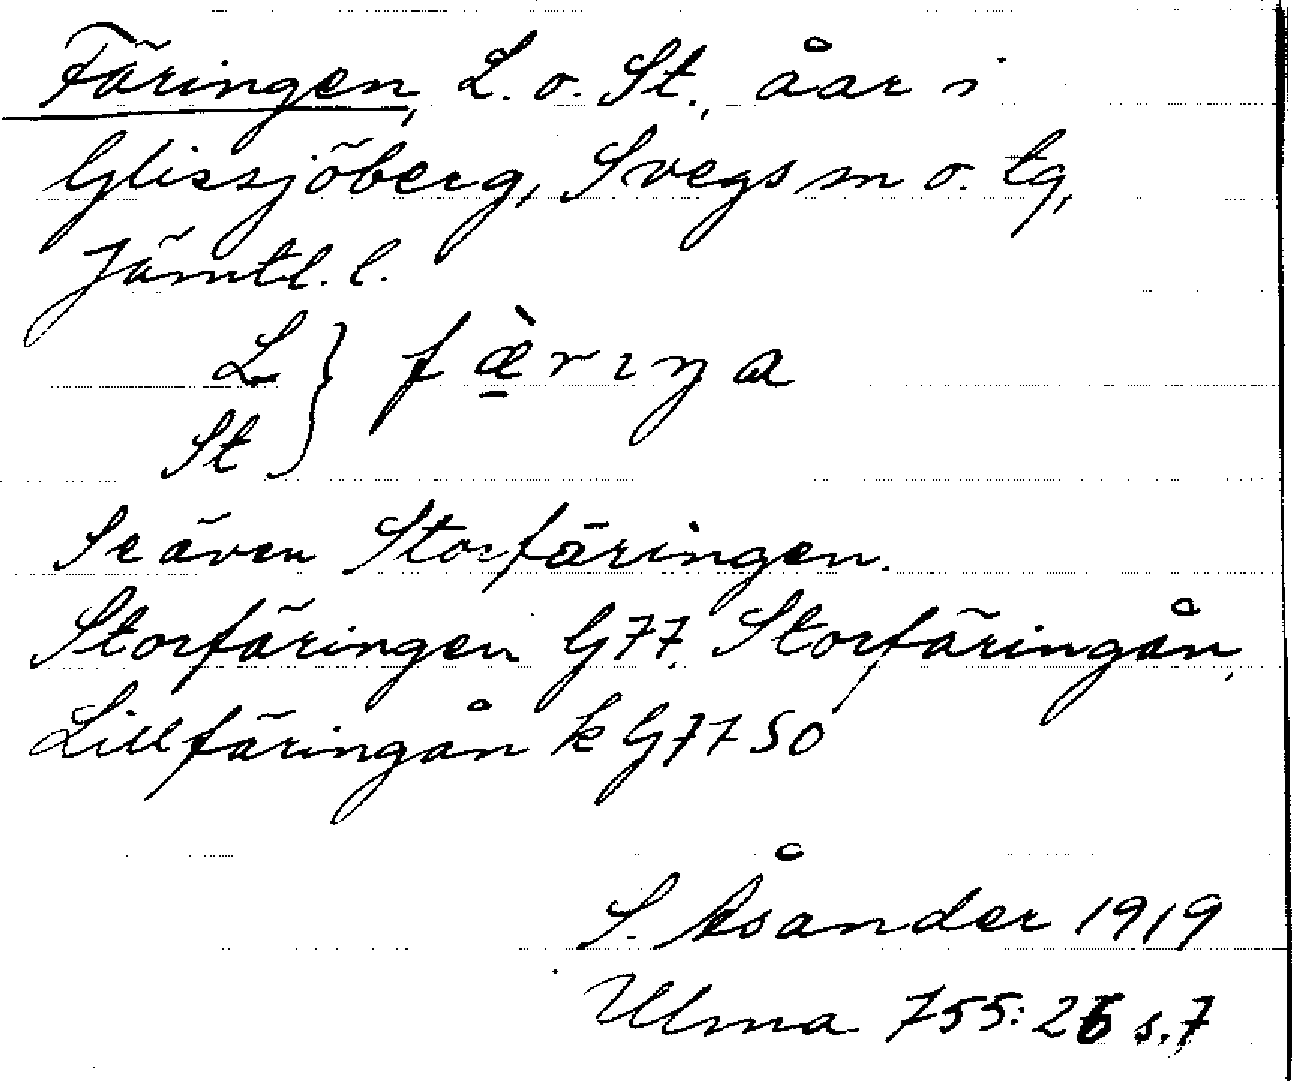 Färingen, L. o. St., åar i
Glissjöberg, Svegs sn o. tg,
Jämtl. l.
L } fæ̠̀rıŋa
St
Se även Storfäringen.
Storfäringen G77. Storfäringån,
Lillfäringån k G77 SO
S. Åsander 1919
Ulma 755: 26 s. 7